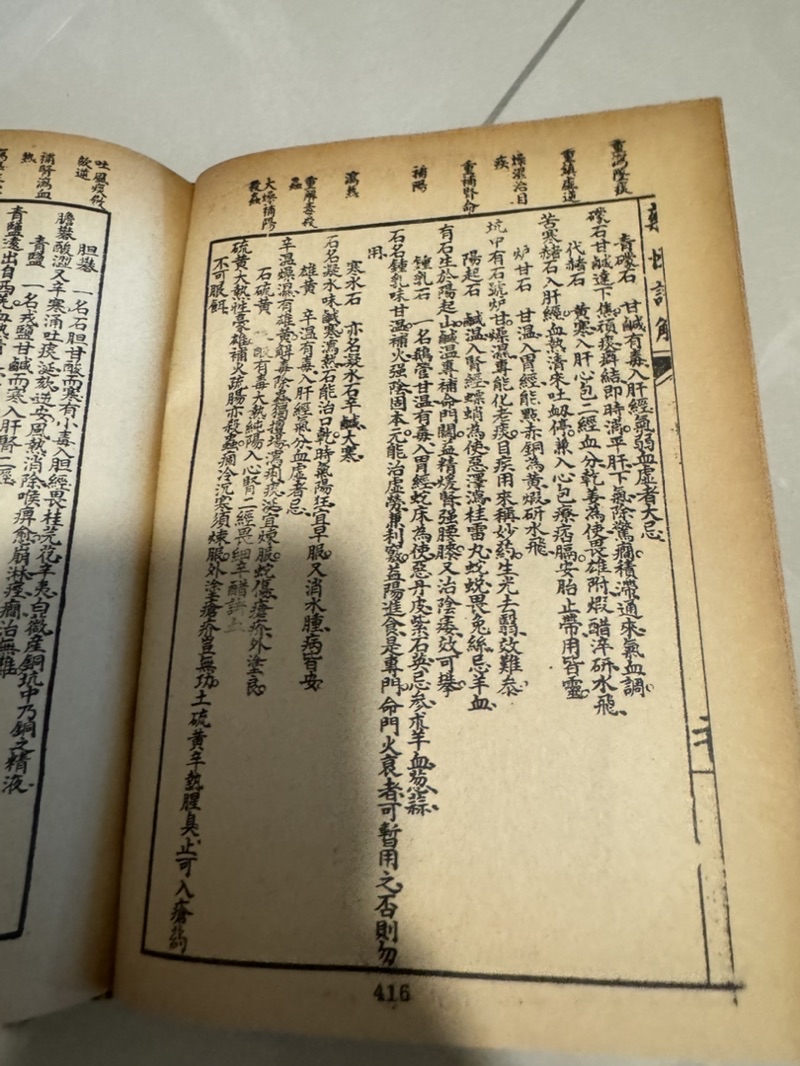 重瀉隂痰
重鎮虛逆
燥濕治目
疾
重補腎命
補陽
瀉熱
重解毒殺
蟲
大燥補陽
殺蟲
青礞石 甘鹹有毒入肝經氣弱血虛者大忌
礞石甘鹹達下焦頑痰癖結即時消平肝下氣除驚癎積滯通來氣血調
代赭石 苦寒入肝心包二經血分乾姜為使畏雄附煆醋淬研水飛
苦寒赭石入肝經血熱清來吐衂停兼入心包療痞膈安胎止帶用皆靈
炉甘石 甘温入胃經能點赤銅為黄煆研水飛
坑中有石號炉甘燥濕專能化老痰目疾用來稱妙药生光去翳效難叅
陽起石 鹹温入腎經螵蛸為使惡澤瀉桂雷丸蛇蜕畏兔絲忌羊血
有石生於陽起山鹹温專補命門關益精煖腎强腰膝又治陰痿效可攀
鍾乳石 一名鵝管甘温有毒入胃經蛇床為使惡丹皮紫石英忌參术羊血葱蒜
石名鍾乳味甘温補火强陰固本元能治虛勞兼利竅益陽進食是專門命門火衰者可暫用之否則勿
用
寒水石 亦名凝水石辛鹹大寒
石名凝水味鹹寒瀉熱石能治口乾時氣陽狂宜早服又消水腫病皆安
雄黄 辛温有毒入肝經氣分血虛者忌
辛温燥濕有雄黄解毒除蟲獨擅塲瀉痢痰涎宜煉服蛇傷瘡疥外塗良
石硫黄 酸有毒大熱純陽入心腎二經畏細辛醋
硫黄大熱性豪雄補火疏腸亦殺蟲痼冷沉寒須煉服外塗瘡疥豈無功土硫黄辛熱腥臭止可入瘡药
不可服餌
416
補腎瀉血
熱
胆礬 一名石胆甘酸而寒有小毒入胆經畏桂芫花辛夷白薇産銅坑中乃銅之精液
膽礬酸澀又辛寒涌吐痰涎欬逆安風熱消除喉痹愈崩淋痙癎治無難
青鹽 一名戎鹽甘鹹而寒入肝腎二經